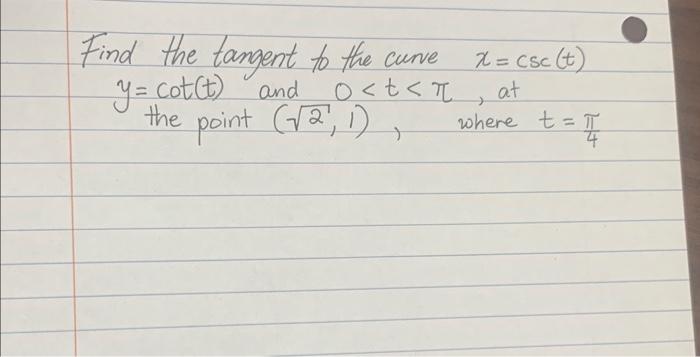 Find the tangent to the curve x = csc(t)
y = cot(t) and 0 < t < π, at
the point (√2, 1), where t = π/4